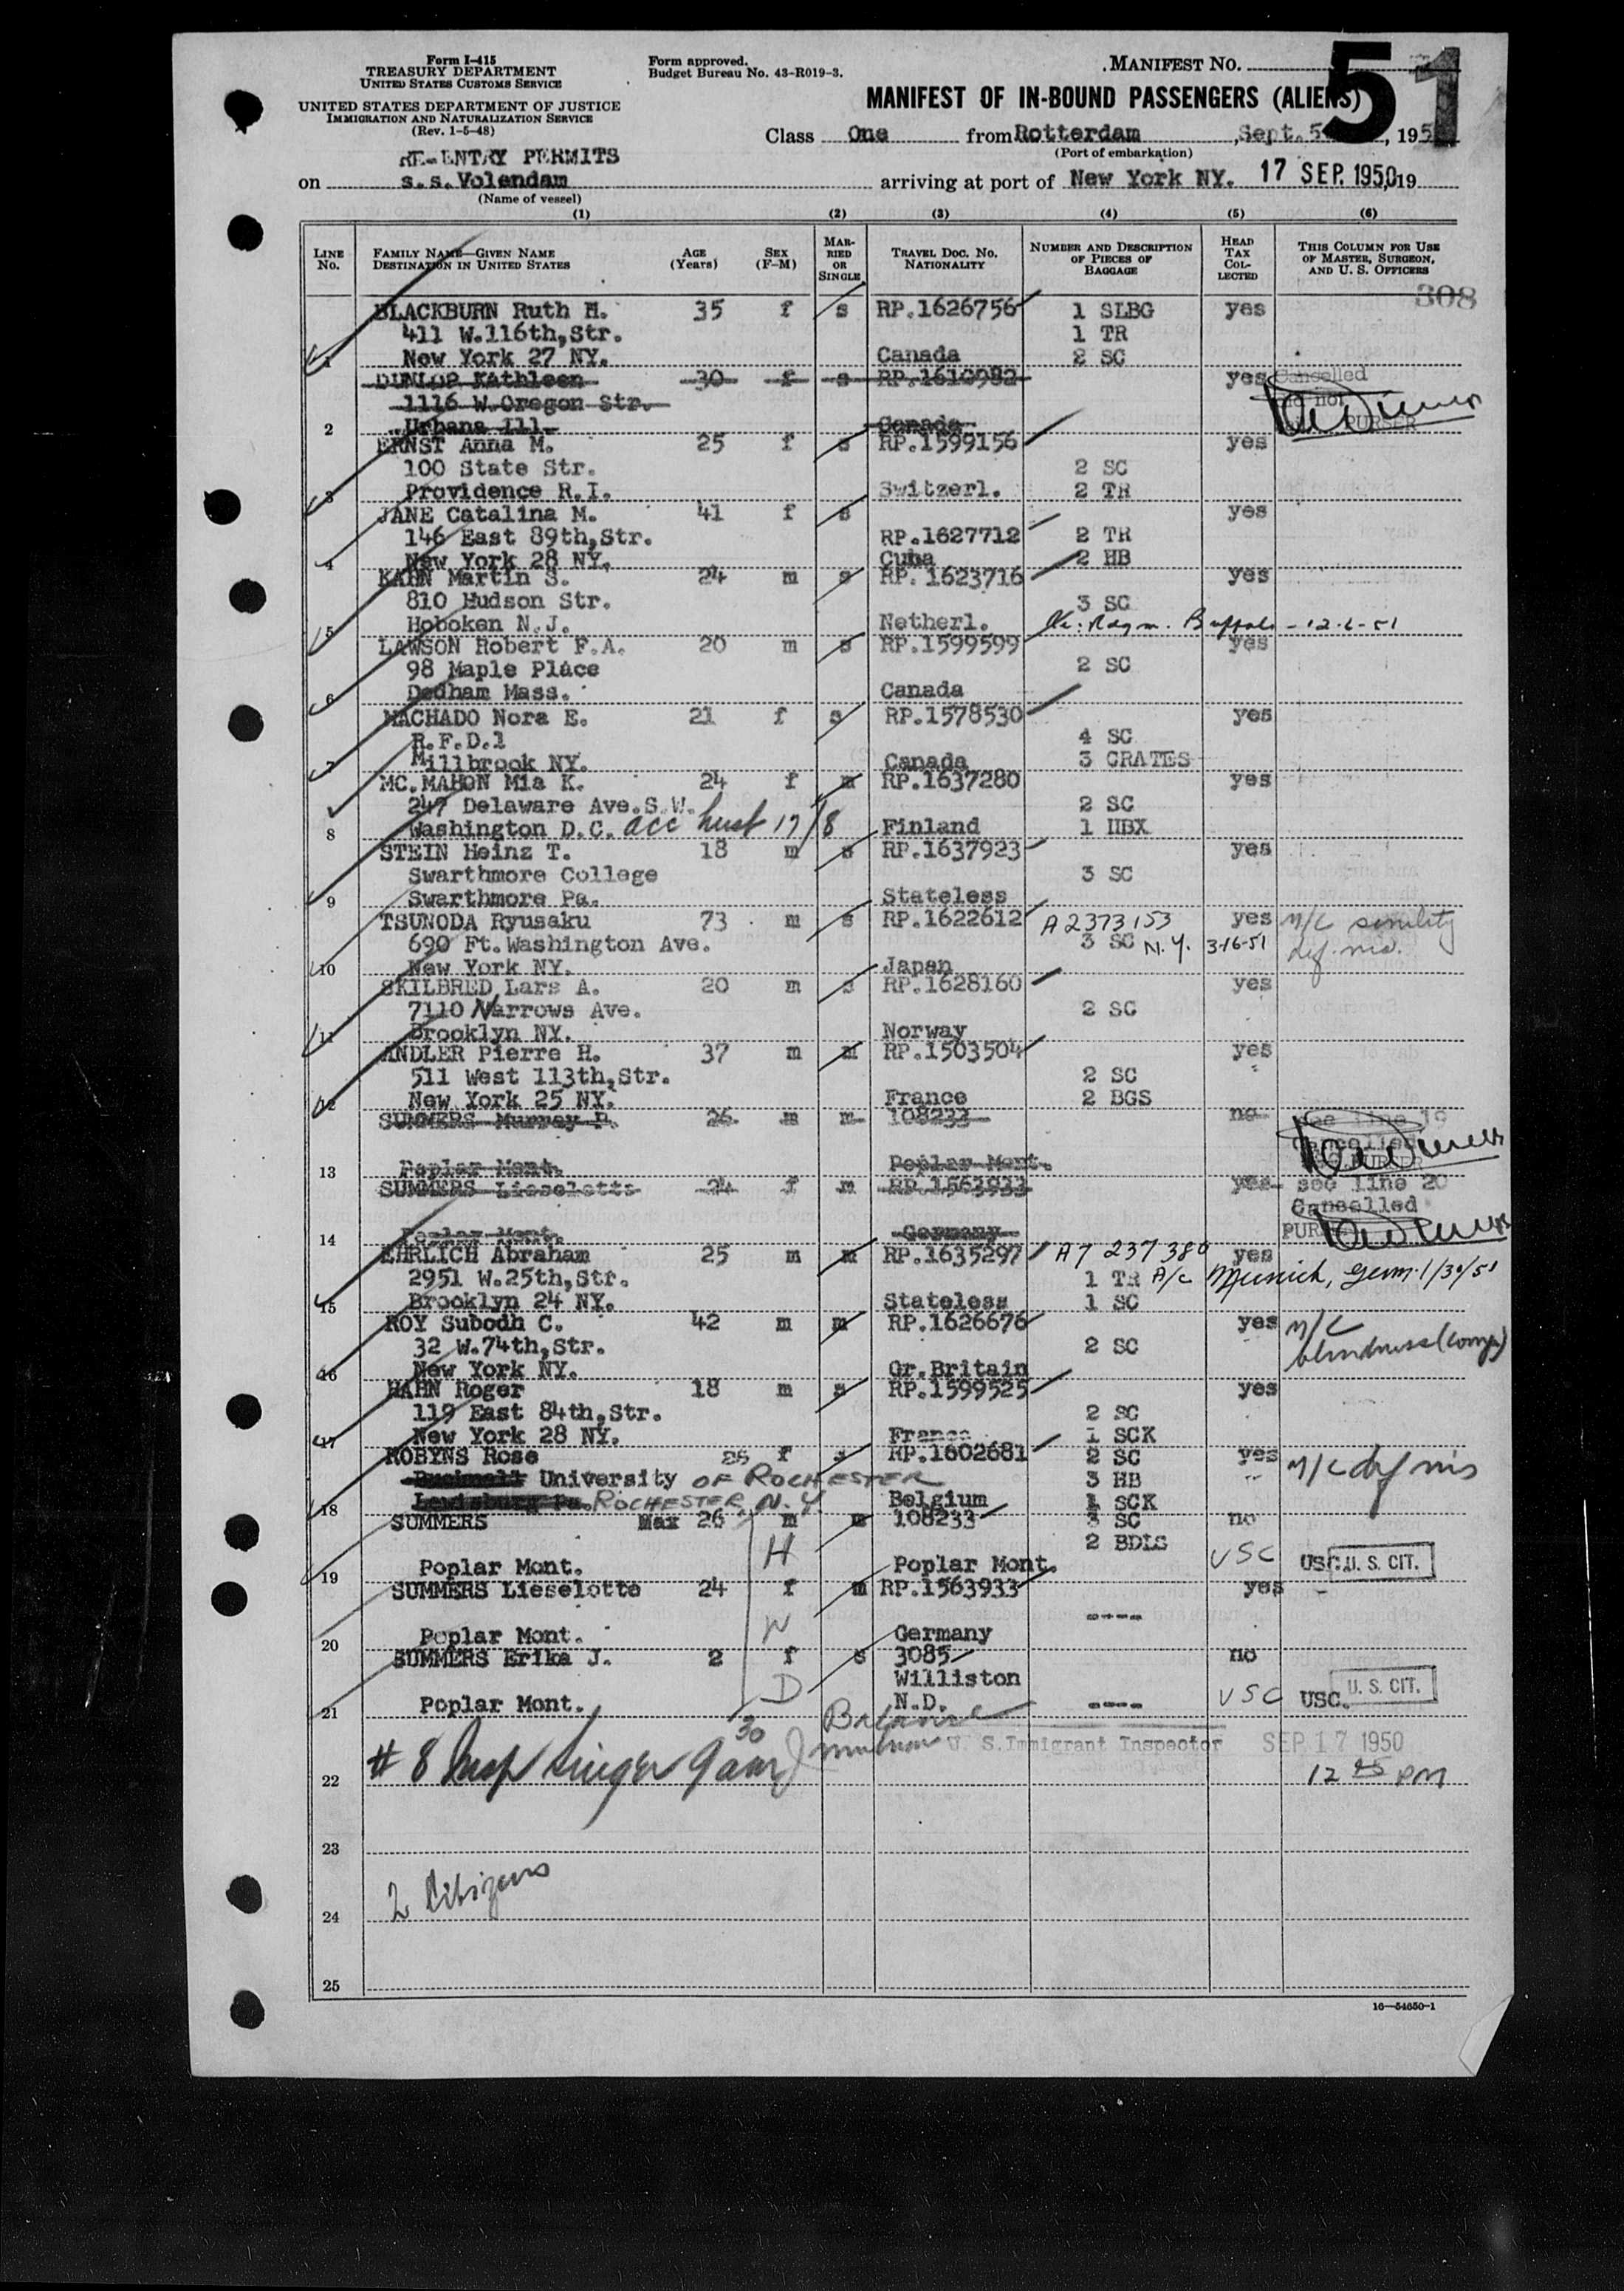 Form I-415
TREASURY DEPARTMENT
UNITED STATES CUSTOMS SERVICE
UNITED STATES DEPARTMENT OF JUSTICE
IMMIGRATION AND NATURALIZATION SERVICE
(Rev. 1-5-48)
Form approved.
Budget Bureau No. 43-R019-3.
MANIFEST NO.
51
MANIFEST OF IN-BOUND PASSENGERS (ALIENS)
Class One from Rotterdam, Sept. 5, 195
(Port of embarkation)
RE-ENTRY PERMITS
on s.s. Volendam arriving at port of New York NY. 17 SEP. 1950, 19
(Name of vessel)
(1) (2) (3) (4) (5) (6)
LINE NO. FAMILY NAME—GIVEN NAME DESTINATION IN UNITED STATES AGE (Years) SEX (F-M) MARRIED OR SINGLE TRAVEL DOC. NO. NATIONALITY NUMBER AND DESCRIPTION OF PIECES OF BAGGAGE HEAD TAX COLLECTED THIS COLUMN FOR USE OF MASTER, SURGEON, AND U. S. OFFICERS
308
BLACKBURN Ruth H. 35 f s RP.1626756 1 SLBG yes
411 W.116th,Str. 1 TR
1 New York 27 NY. Canada 2 SC
DUNLOP Kathleen 30 f s RP.1610982 yes Cancelled
1116 W.Oregon Str. not
2 Urbana Ill. Canada PURSER
ERNST Anna M. 25 f s RP.1599156 yes
100 State Str. 2 SC
3 Providence R.I. Switzerl. 2 TR
JANE Catalina M. 41 f s yes
146 East 89th,Str. RP.1627712 2 TR
4 New York 28 NY. Cuba 2 HB
KAHN Martin S. 24 m s RP. 1623716 yes
810 Hudson Str. 3 SC
5 Hoboken N.J. Netherl. Buffalo - 12-6-51
LAWSON Robert F.A. 20 m s RP.1599599 yes
98 Maple Place 2 SC
6 Dedham Mass. Canada
MACHADO Nora E. 21 f s RP.1578530 yes
R.F.D.1 4 SC
7 Millbrook NY. Canada 3 CRATES
MC.MAHON Mia K. 24 f m RP.1637280 yes
247 Delaware Ave.S.W. 2 SC
8 Washington D.C. acc husb 17/8 Finland 1 HBX
STEIN Heinz T. 18 m s RP.1637923 yes
Swarthmore College 3 SC
9 Swarthmore Pa. Stateless
TSUNODA Ryusaku 73 m s RP.1622612 A2373153 yes M/C senility
690 Ft.Washington Ave. 3 SC N.Y. 3-16-51
10 New York NY. Japan
SKILBRED Lars A. 20 m s RP.1628160 yes
7110 Narrows Ave. 2 SC
11 Brooklyn NY. Norway
ANDLER Pierre H. 37 m m RP.1503504 yes
511 West 113th,Str. 2 SC
12 New York 25 NY. France 2 BGS
SUMMERS Murray P. 26 m m 108233 no see line 19
Cancelled
13 Poplar Mont. Poplar Mont. PURSER
SUMMERS Lieselotte 24 f m RP.1563933 yes see line 20
Cancelled
14 Poplar Mont. Germany PURSER
EHRLICH Abraham 25 m m RP.1635297 A7 237 386 yes
2951 W.25th,Str. 1 TR A/c Munich, Germ. 1/30/51
15 Brooklyn 24 NY. Stateless 1 SC
ROY Subodh C. 42 m m RP.1626676 yes M/C
32 W.74th,Str. 2 SC blindness
16 New York NY. Gr.Britain
HAHN Roger 18 m s RP.1599525 yes
119 East 84th,Str. 2 SC
17 New York 28 NY. France 1 SCK
ROBYNS Rose 25 f s RP.1602681 2 SC yes M/C
Bucknell University OF ROCHESTER 3 HB
18 Lewisburg Pa. ROCHESTER N.Y. Belgium 1 SCK
SUMMERS Max 26 m m 108233 3 SC no
H 2 BDLS
19 Poplar Mont. Poplar Mont. USC USC. U. S. CIT.
SUMMERS Lieselotte 24 f m RP.1563933 yes
W ----
20 Poplar Mont. Germany
SUMMERS Erika J. 2 f s 3085 no
Williston
21 Poplar Mont. D N.D. ---- USC USC. U. S. CIT.
Balance
# 8 Insp Singer 9 30 am U. S. Immigrant Inspector SEP 17 1950
22 12 45 PM
23
2 Citizens
24
25
16—54650-1